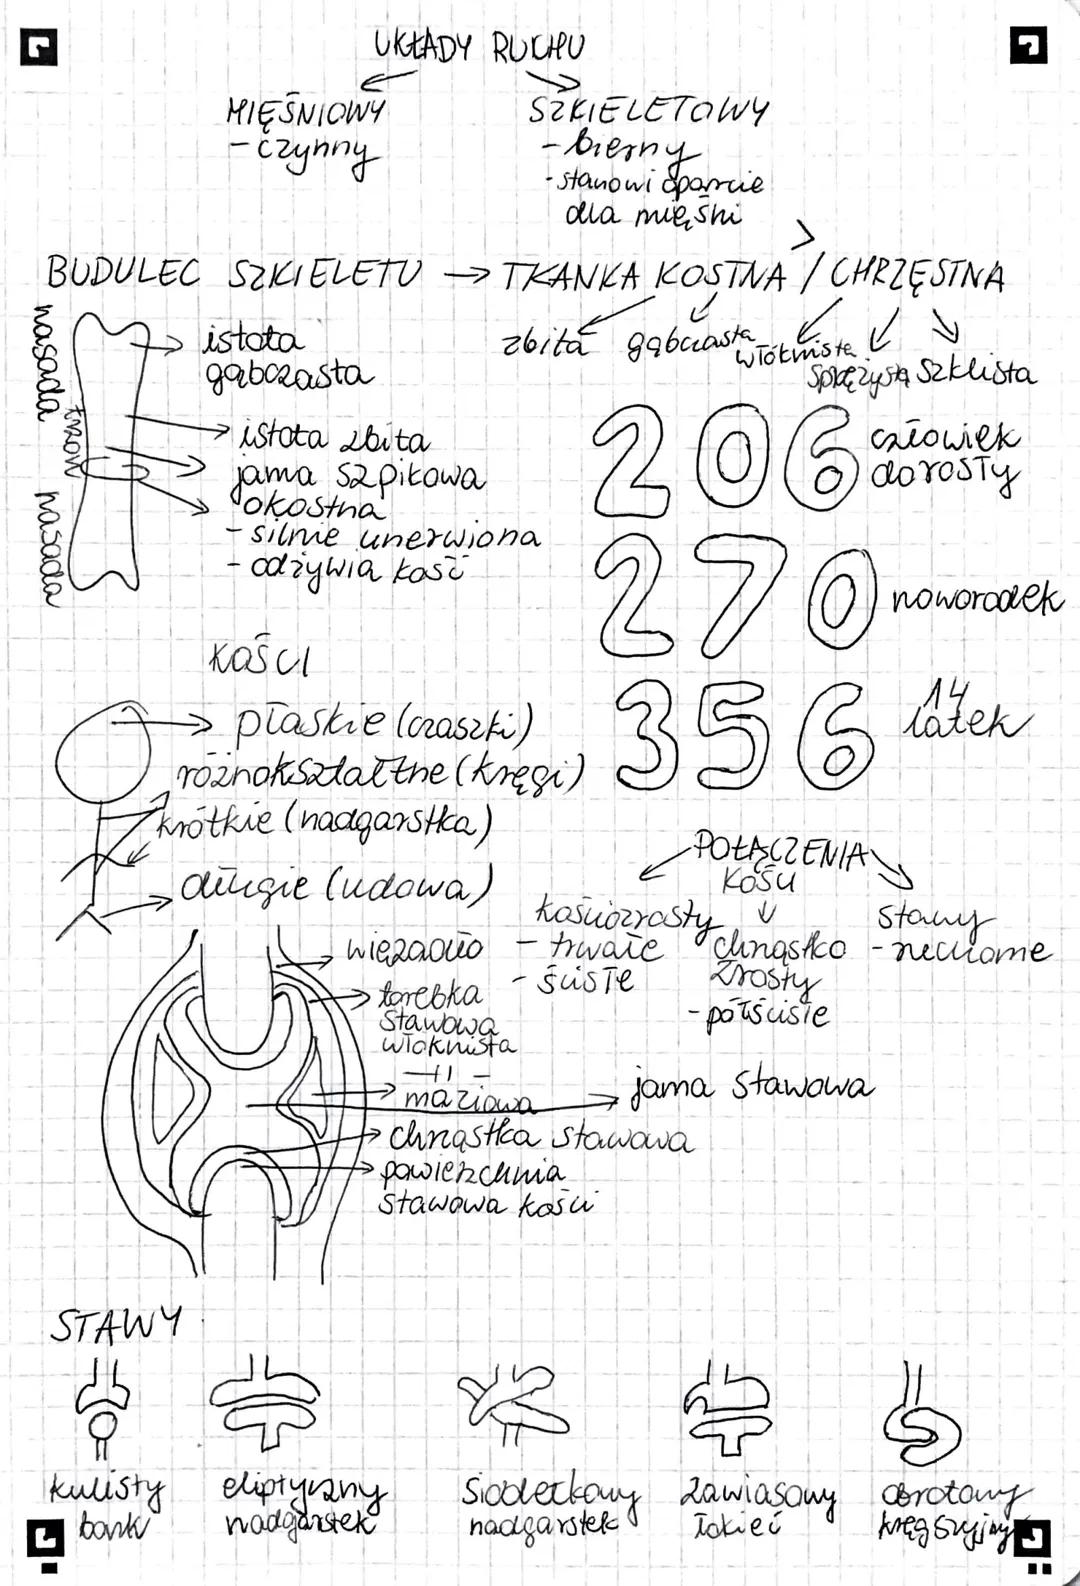 UKŁADY RUCHU
MIĘŚNIOWY
- czynny
SZKIELETOWY
- bierny
- stanowi oparcie
dla mięśni
BUDULEC SZKIELETU → TKANKA KOSTNA / CHRZĘSTNA
zbita gąbczasta włóknista sprężysta szklista
nasada
trzon
nasada
istota
gąbczasta
istota zbita
jama szpikowa
okostna
- silnie unerwiona
- odżywia kość
206 człowiek
dorosły
270 noworodek
356 14
latek
KOŚCI
płaskie (czaszki)
różnokształtne (kręgi)
krótkie (nadgarstka)
długie (udowa)
POŁĄCZENIA
KOŚCI
kościozrosty
- trwałe
- ścisłe
chrząstko
zrosty
- półścisłe
stawy
- ruchome
więzadło
torebka
stawowa
włóknista
-11-
maziowa
jama stawowa
chrząstka stawowa
powierzchnia
stawowa kości
STAWY
kulisty
bark
eliptyczny
nadgarstek
siodełkowy
nadgarstek
zawiasowy
łokieć
obrotowy
kręg szyjny